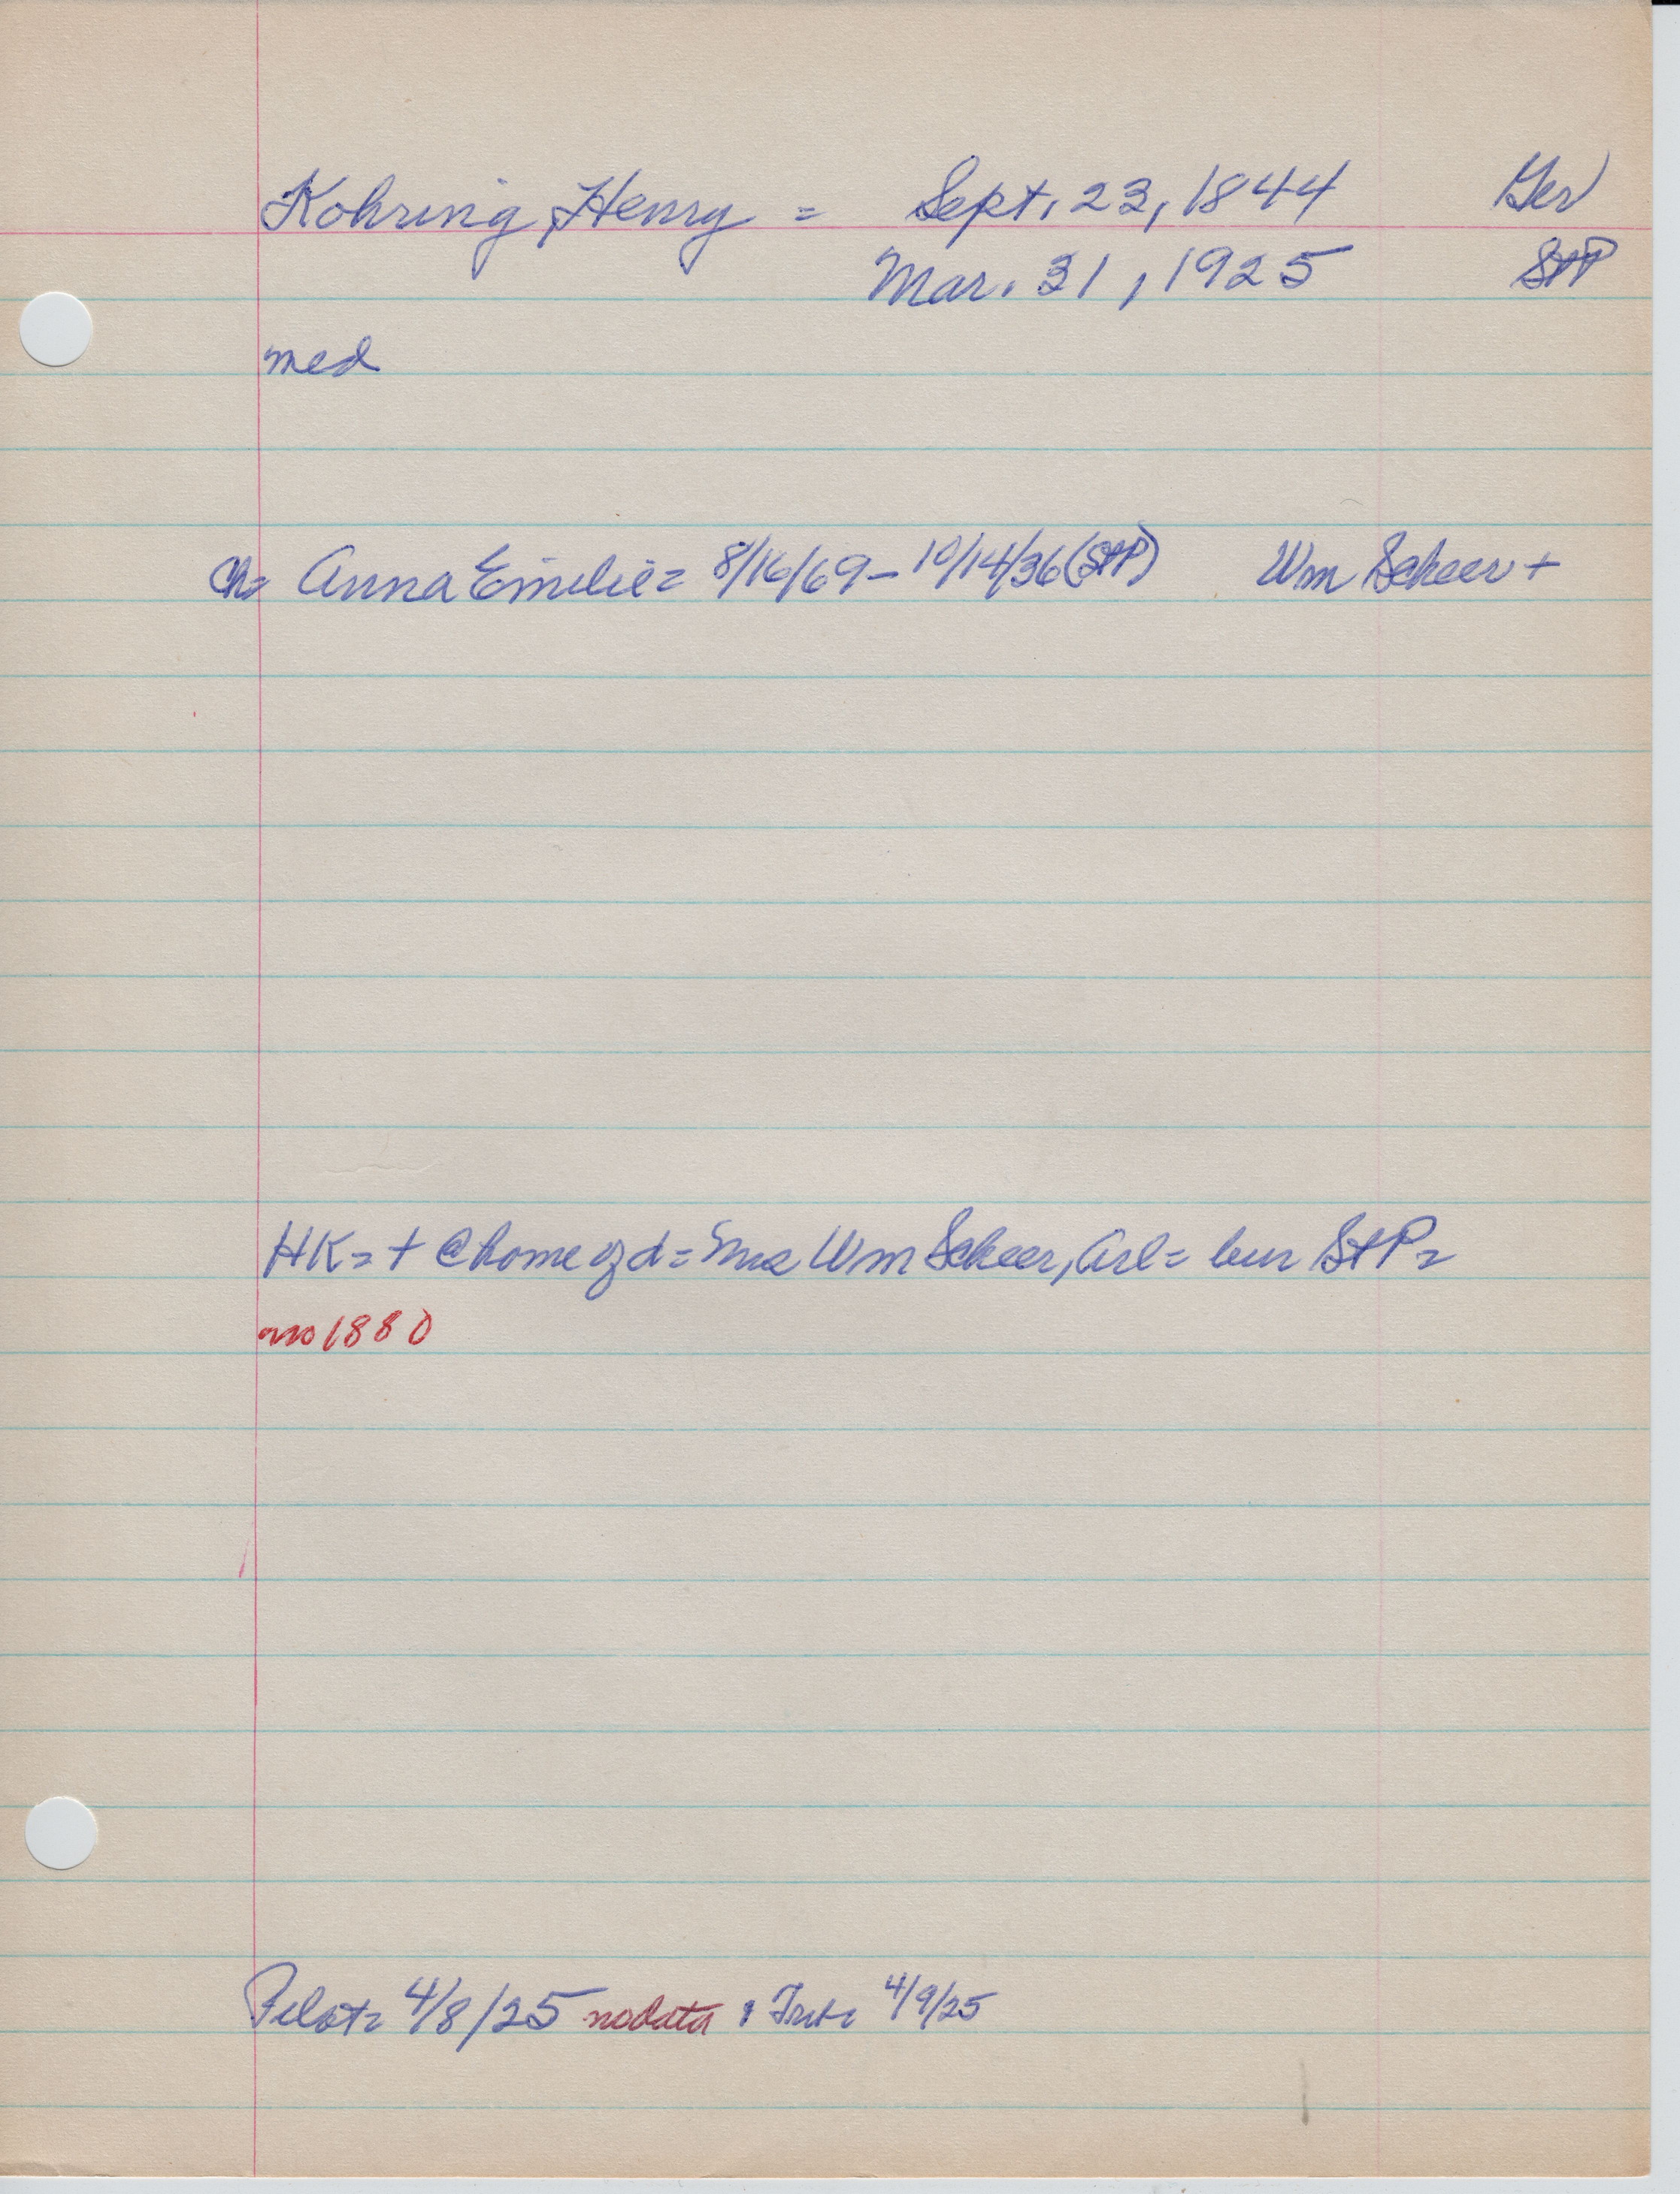 Kohring, Henry = Sept. 23, 1844 Ger
Mar. 31, 1925 StP
med
Ch= Anna Emilie = 8/16/69 - 10/14/36 (StP) Wm Scheer +
HK = + @ home of d = Mrs Wm Scheer, Arl = bur StP =
no 1880
Pilot = 4/8/25 no data ; Trib = 4/9/25